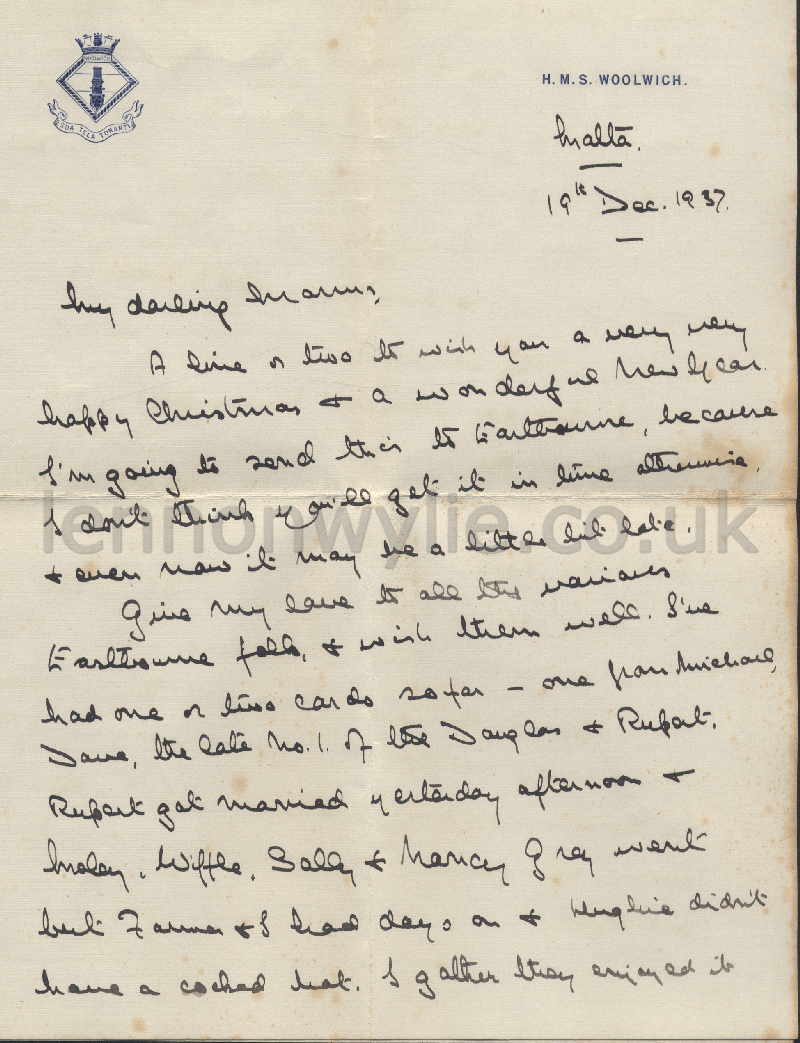 WOOLWICH
SUA TELA TONANTI
H.M.S. WOOLWICH.
Malta.
19th Dec. 1937.
My darling Mams,
A line or two to wish you a very very
happy Christmas & a wonderful New Year.
I'm going to send this to Eastbourne, because
I don't think you'll get it in time otherwise,
lennonwylie.co.uk
& even now it may be a little bit late.
Give my love to all the various
Eastbourne folk, & wish them well. I've
had one or two cards so far – one from Michael,
Dave, the late No. 1. of the Douglas & Rupert.
Rupert got married yesterday afternoon &
Moley, Wiffle, Sally & Nancy Gray went
but Farmer & I had days on & Hughie didn't
have a cocked hat. I gather they enjoyed it